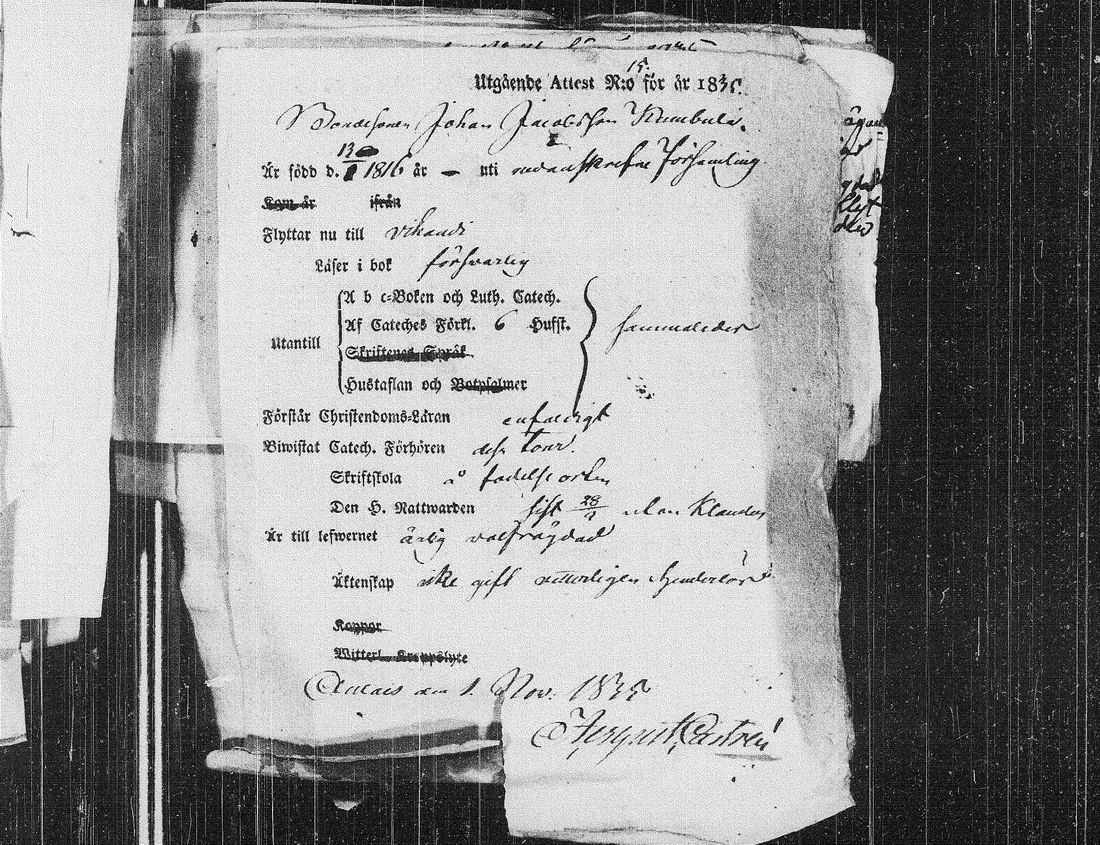 Utgående Attest N:o 15. för år 1835.
Bondesonen Johan Jacobsson Kumbula.
Är född d. 13/1 1816 år — uti nedanskrefne Församling.
Kom år ifrån
Flyttar nu till
Läser i bok försvarlig
Utantill
A b c-Boken och Luth. Catech.
Af Cateches Förkl. 6 Hufst. sammaledes
Skriftenes Språk
Hustaflan och Botpsalmer
Förstår Christendoms-Läran enfaldigt
Biwistat Catech. Förhören dess
Skriftskola å födelse orten
Den H. Nattwarden sist 28/9 utan Klander
Är till lefwernet ärlig välfrägdad
Äktenskap icke gift vitterligen hinderlös
Koppor
Witterl. Kroppslyte
den 1. Nov. 1835
Castrén